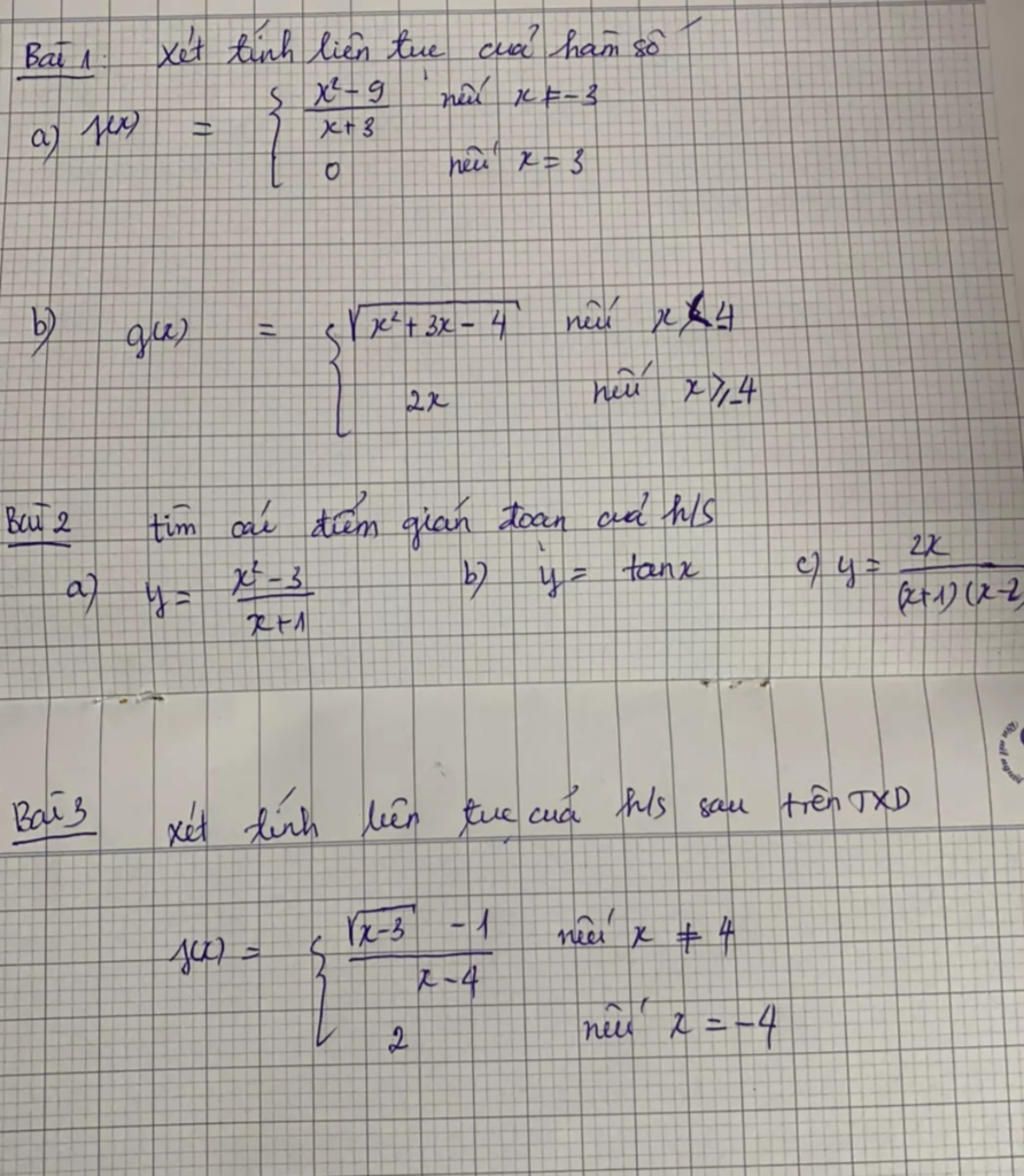 Bài 1: Xét tính liên tục của hàm số
a) f(x) = { (x² - 9)/(x + 3) nếu x ≠ -3
0 nếu x = 3
b) g(x) = { √(x² + 3x - 4) nếu x < 4
2x nếu x ≥ -4
Bài 2 tìm các điểm gián đoạn của h/s
a) y = (x² - 3)/(x + 1) b) y = tanx c) y = 2x/((x+1)(x-2)
Bài 3 xét tính liên tục của h/s sau trên TXD
f(x) = { (√(x-3) - 1)/(x - 4) nếu x ≠ 4
2 nếu x = -4